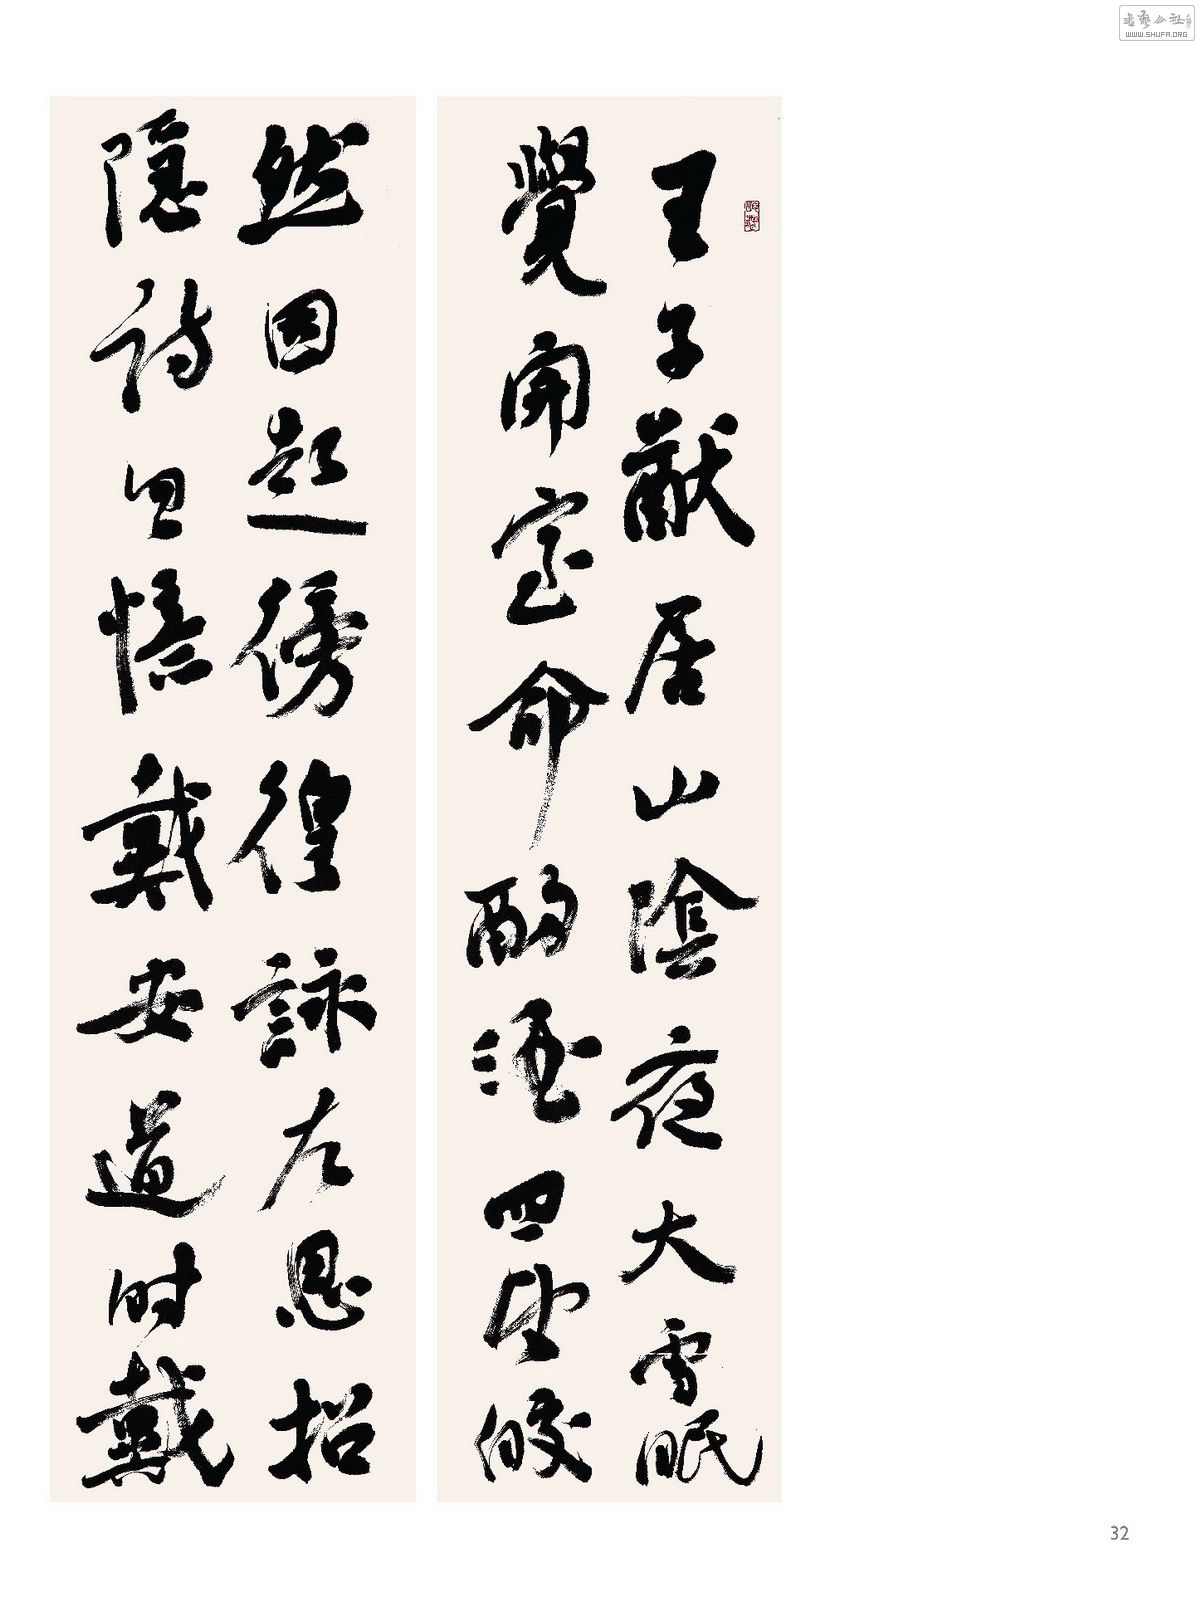 王子猷居山陰夜大雪眠
覺開室命酌酒四望皎
然因起傍徨詠左思招
隱詩忽憶戴安道时戴
32
WWW.SHUFA.ORG